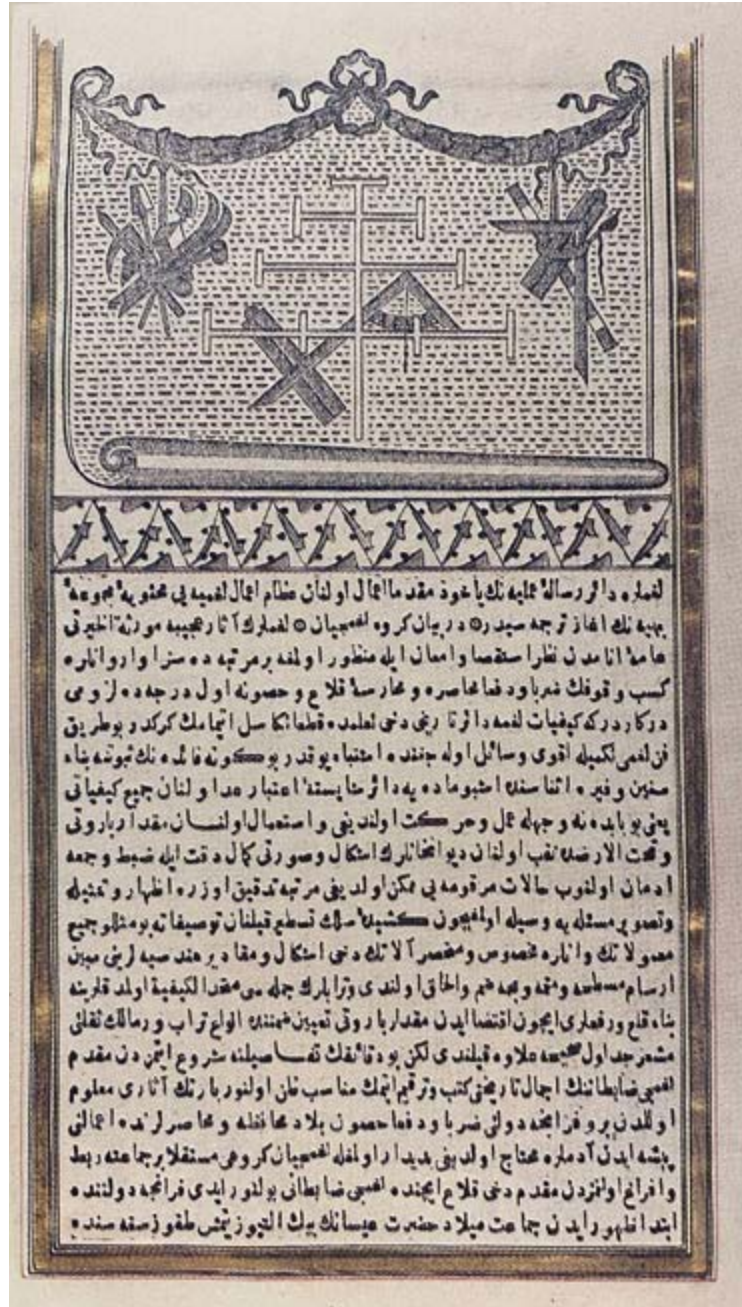 لغملره دائر رسالهٔ عملیه نك یاخوذ مقدما اعمال اولنان عظام اعمال لغمیه یی محتویه مجموعهٔ
بهیه نك اغاز ترجمه سیدر ۞ در بیان کروه لغمجیان ۞ لغملرك آثار عجیبه مورثة الحیرتی
عامهٔ انامدن نظر استقصا وامعان ایله منظور اولمغه بر مرتبه ده سزاوار وانلره
کسب وقوفك ضربا ودفعا محاصره ومحارسهٔ قلاع وحصونه اول درجه ده لزومی
درکاردرکه کیفیات لغمه دائر تاریخی دخی تعلمده قطعا تکاسل ایتمامك کرکدر بو طریق
فن لغمی تکمیله اقوی وسائل اوله جغنده اشتباه یوقدر بو گونه فائده نك ثبوتنه بناء
سنین وفیره اثناسنده اشبو ماده یه دائر شایستهٔ اعتبار عد اولنان جمیع کیفیاتی
یعنی بو بابده نه وجهله عمل وحرکت اولندیغنی واستعمال اولنان مقدار باروتی
وتحت الارضده نقب اولنان دیوانخانلرك اشکال وصورتی کمال دقت ایله ضبط وجمعه
ادمان اولنوب حالات مرقومه یی ممکن اولدیغی مرتبه تدقیق اوزره اظهار وتمثیله
وتصویر مسئله یه وسیله اولمغیچون کشیدهٔ سلك تسطیر قیلنان توصیفاته بو مثللو جمیع
معمولاتك وانلره مخصوص ومقصر آلاتك دخی اشکال ومقادیر هندسیه لرینی مبین
ارسام مسطحه ومقومه بجه ضم والحاق اولندی وترابلرك جمله سی متحد الکیفیة اولمدقلرینه
بناء قلع ورفعلری ایچون اقتضا ایدن مقدار باروتی تعیین ضمننده انواع تراب ورمالك ثقلتنی
مشعر جداول صحیحه علاوه قیلندی لکن بو دقائقك تفاصیلنه شروع ایتمزدن مقدم
لغمجی ضابطاننك اجمال تاریخنی کتب وترقیم ایتمك مناسب ظن اولنور بارتك آثاری معلوم
اولدن برو فرانچه دولتی ضربا ودفعا حصون وبلاد محافظه ومحاصرلرنده اعمالنی
پیشه ایدن آدملره محتاج اولدیغی بدیدار اولمغله لغمجیان کروهی مستقلا بر جماعته ربط
وافراغ اولنمزدن مقدم دخی قلاع ایچنده لغمجی ضابطانی بولنور ایدی فرانچه دولتنده
ابتدا ظهور ایدن جماعت میلاد حضرت عیسانك بیك التیوز یتمش طقوز سنه سنده